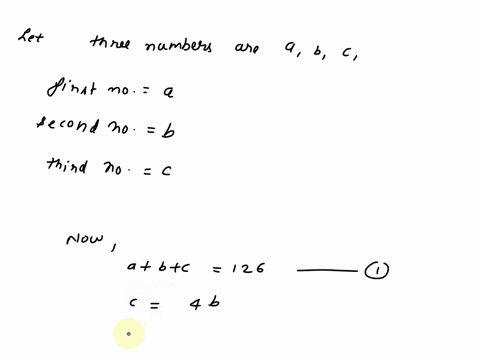 Let three numbers are a, b, c,
first no. = a
second no. = b
third no. = c
Now,
a + b + c = 126 ——— ①
c = 4 b